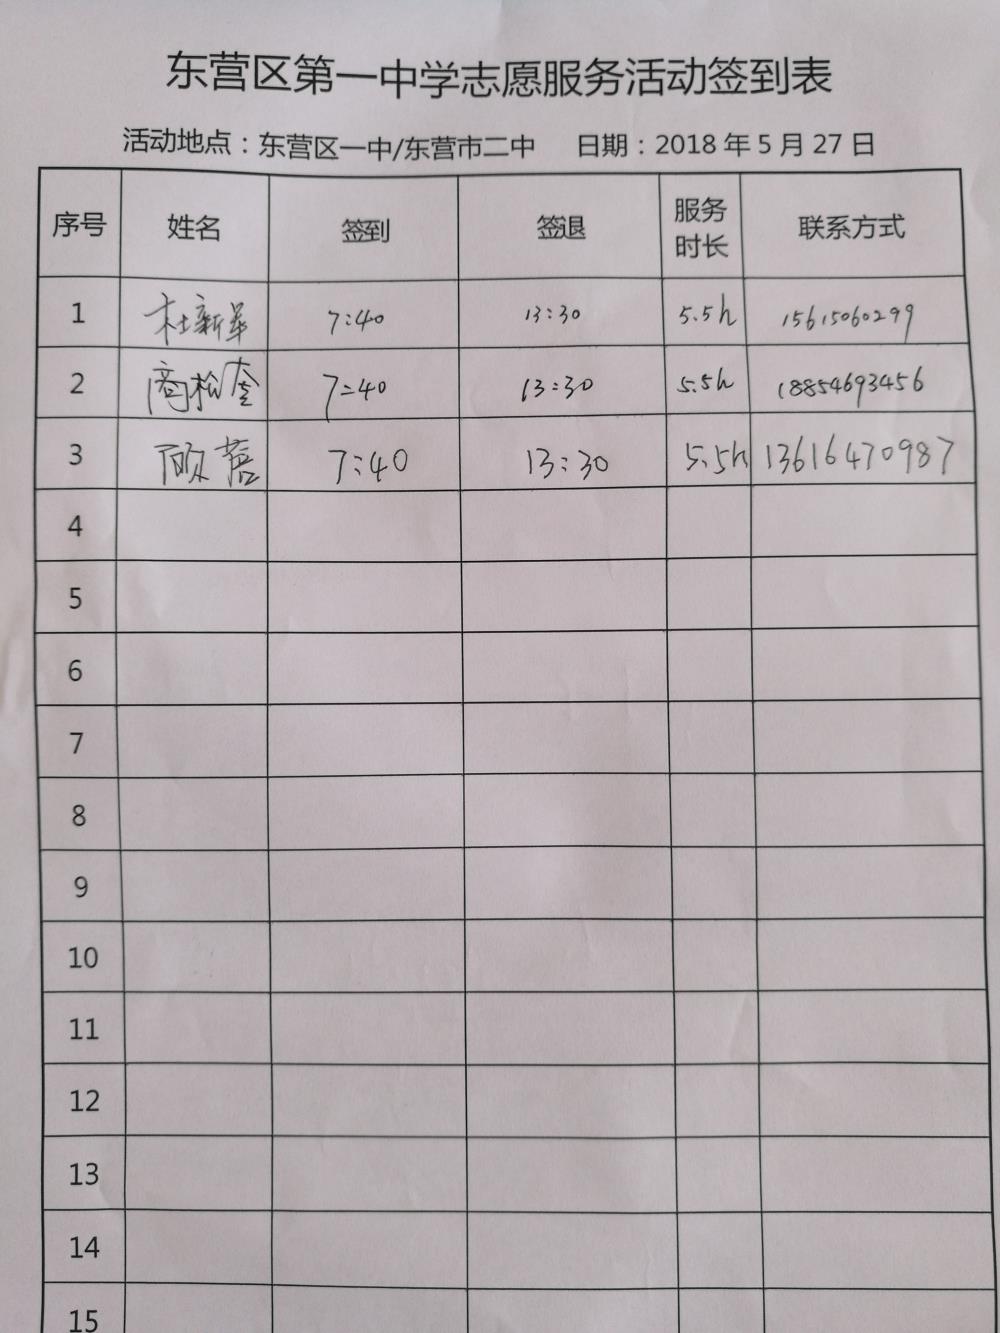 东营区第一中学志愿服务活动签到表
活动地点：东营区一中/东营市二中 日期：2018 年 5 月 27 日
序号 姓名 签到 签退 服务时长 联系方式
1 杜新华 7:40 13:30 5.5h 15615060299
2 商松奎 7:40 13:30 5.5h 18854693456
3 7:40 13:30 5.5h 13616470987
4
5
6
7
8
9
10
11
12
13
14
15